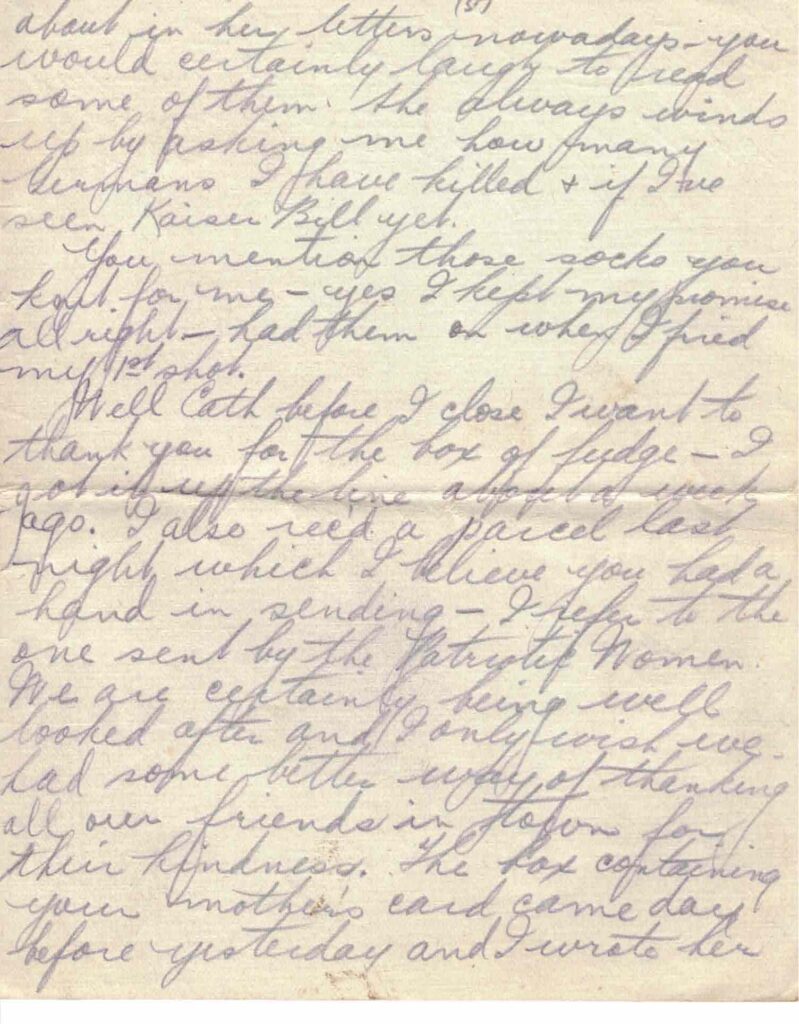 (5)
about in her letters nowadays - you
would certainly laugh to read
some of them. She always winds
up by asking me how many
Germans I have killed + if I've
seen Kaiser Bill yet.
You mention those socks you
knit for me - yes I kept my promise
all right - had them on when I fired
my 1st shot.
Well Cath before I close I want to
thank you for the box of fudge - I
got it up the line about a week
ago. I also rec'd a parcel last
night which I believe you had a
hand in sending - I refer to the
one sent by the Patriotic Women.
We are certainly being well
looked after and I only wish we
had some better way of thanking
all our friends in town for
their kindness. The box containing
your mother's card came day
before yesterday and I wrote her